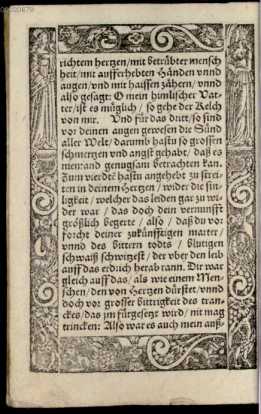 richtem hertzen/mit betrübter mensch
heit/mit aufferhebten Händen vnnd
augen/vnd mit haissen zähern/ vnnd
also gesagt: O mein himlischer Vat-
ter/ist es müglich/ so gehe der Kelch
von mir. Vnd für das dritt/so sind
vor deinen augen gewesen die Sünd
aller Welt/darumb hastu so grossen
schmertzen vnd angst gehabt/daß es
niemand genugsam betrachten kan.
Zum vierdtē hastu angehebt zu strei-
ten in deinem Hertzen/wider die sin-
ligkeit/welcher das leiden gar zu wi-
der war/das doch dein vernunfft
größlich begerte/also/daß du vor
forcht deiner zukünfftigen marter/
vnnd des bittern todts/blutigen
schwaiß schwitzest/der vber den leib
auff das erdrich herab rann. Dir war
gleich auff das/als wie einem Men-
schen/den von Hertzen dürstet/vnnd
doch vor grosser bittrigkeit des tran-
ckes/das jm fürgesetzt wird/nit mag
trincken: Also war es auch mein auß-